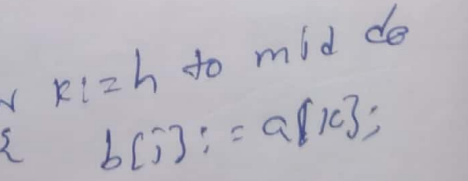 k:=h to mid do
{ b[j]:=a[k];